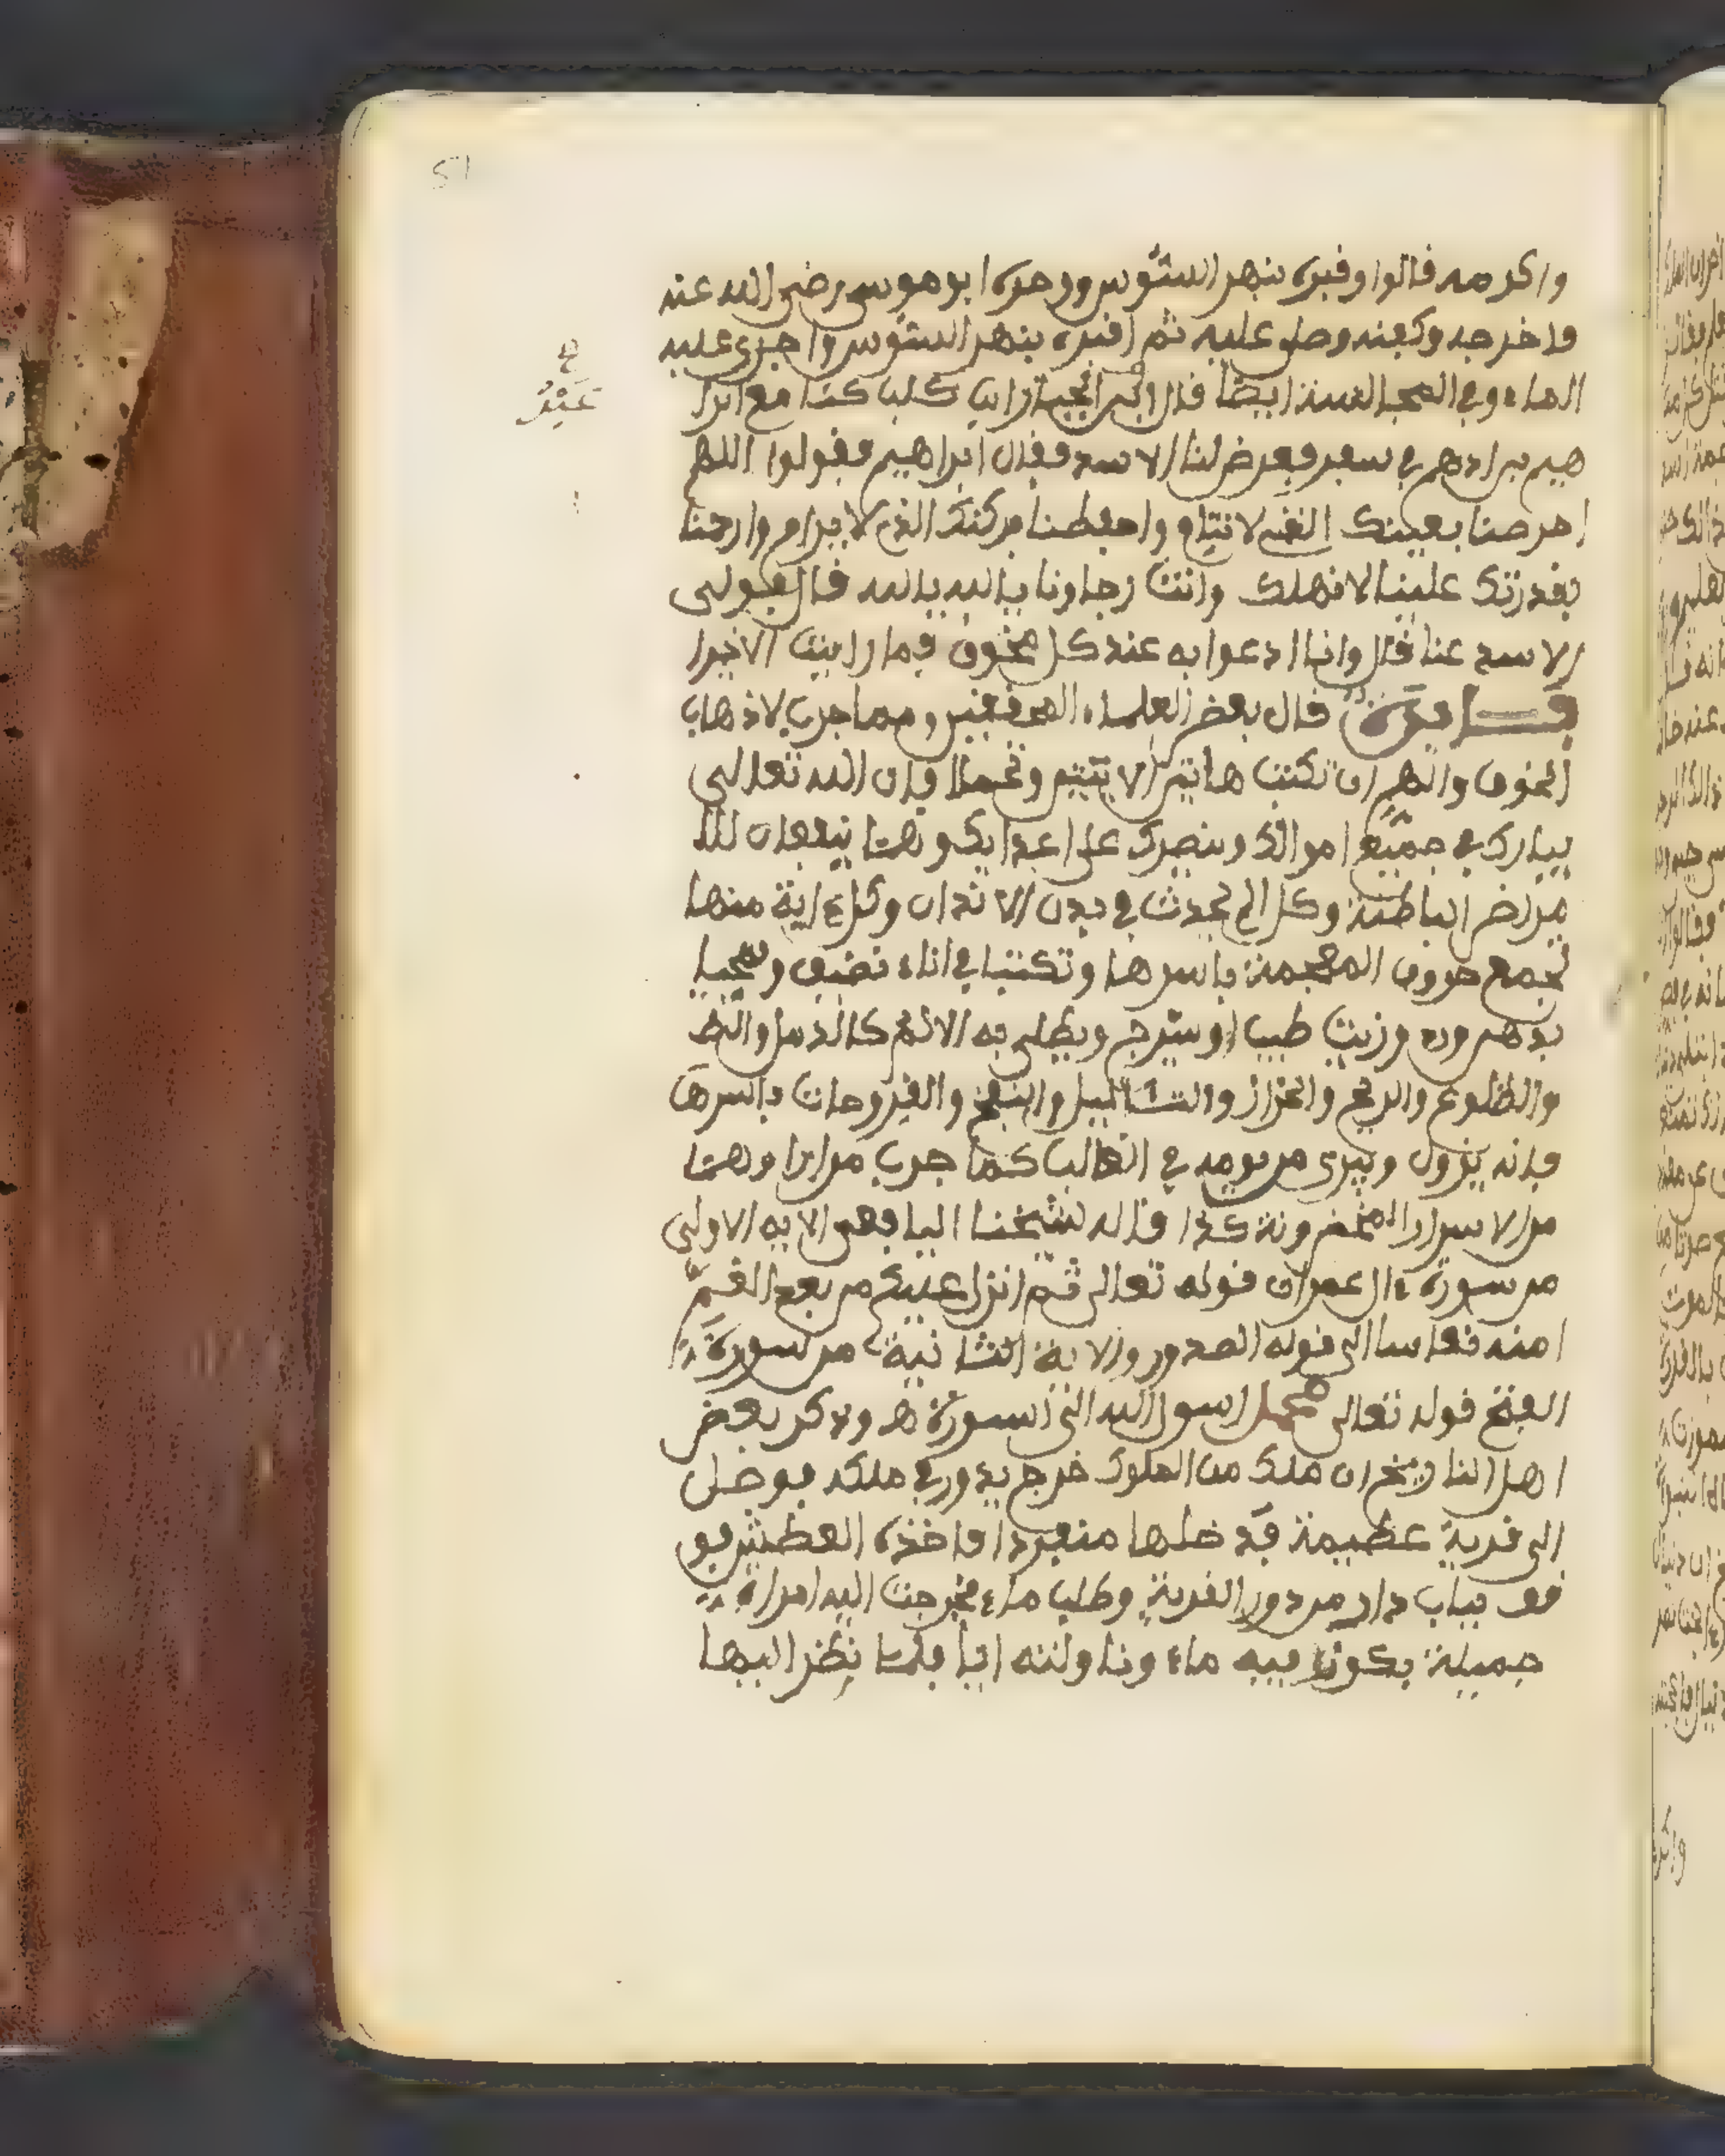 51
واكرمه فالوا وفبره بنهر السوس ووجده ابو موسى رضى الله عنه
فاخرجه وكفنه وصلى عليه ثم افبره بنهر السوس واجرى عليه
الماء وفى المجالسة ايضا فال كنا مع ابرا
هيم بن ادهم فى سفر فعرض لنا الاسد ففال ابراهيم فولوا اللهم
احرصنا بعينك التى لا تنام واحفظنا بركنك الذى لا يرام وارحمنا
بفدرتك علينا لا نهلك وانت رجاونا يا الله يا الله فال فولى
الاسد عنا فال وانا ادعوا به عند كل مخوف فما رايت الا خيرا
فايدة فال بعض العلماء المحففين ومما جرب لاذهاب
الخوف والهم ان تكتب هاتين الايتين وتحملا فان الله تعالى
يبارك فى جميع اموالك وينصرك على اعدايك وهما ينفعان لل
من الباطنة وكل الم يحدث فى بدن الانسان وكل ءاية منها
تجمع حروف المعجمة باسرها وتكتبا فى اناء نضيف ويمحيا
بدهن ورد وزيت طيب او سيرج ويطلى به الالم كالدمل والبط
والطلوع والريح والحزاز والثاليل والنفخ والفروحات باسرها
فانه يزول ويبرى من يومه فى الغالب كما جرب مرارا وهما
من الاسرار المخزونة كذا فاله شيخنا اليافعى الايه الاولى
من سورة ءال عمران فوله تعالى ثم انزل عليكم من بعد الغم
امنة نعاسا الى فوله الصدور والاية الثانية من سورة
الفتح فوله تعالى محمد رسول الله الى السورة هـ وذكر بعض
اهل التاريخ ان ملك من الملوك خرج يدور فى ملكه فوصل
الى فرية عظيمة فدخلها منفردا فاخذه العطش فو
فف بباب دار من دور الفرية وطلب ماء فخرجت اليه امراة
جميلة بكوز فيه ماء وناولته ايا فلما نظر اليها